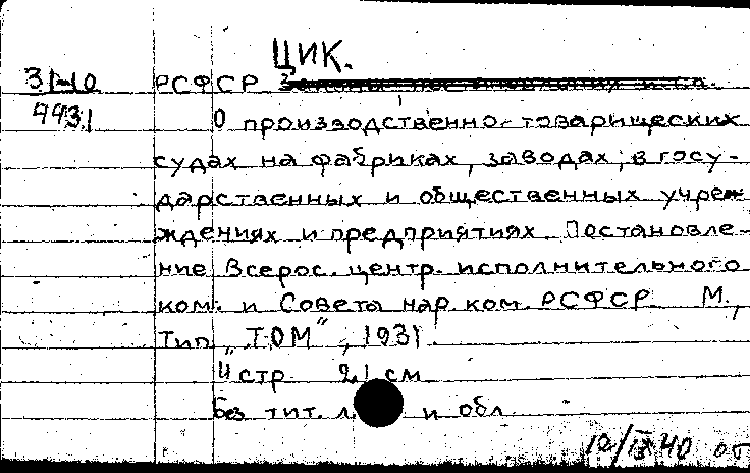 ЦИК.
31-10 РСФСР
4431 О производственно-товарищеских
судах на фабриках, заводах, в госу-
дарственных и общественных учреж
ждениях и предприятиях. Постановле-
ние Всерос. центр. исполнительного
ком. и Совета нар. ком. РСФСР М.,
Тип. „ТОМ", 1931
4 стр 21 см
Без тит. л. и обл.